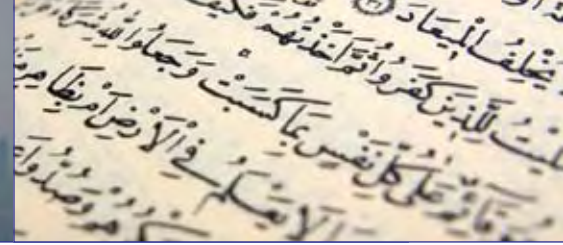 يُخْلِفُ الْمِيعَادَ ٣١
لِلَّذِينَ كَفَرُوا ثُمَّ أَخَذْتُهُمْ فَكَيْفَ
قَائِمٌ عَلَىٰ كُلِّ نَفْسٍ بِمَا كَسَبَتْ وَجَعَلُوا لِلَّهِ
لَا يَعْلَمُ فِي الْأَرْضِ أَمْ بِظَاهِرٍ مِنَ
وَصُدُّوا